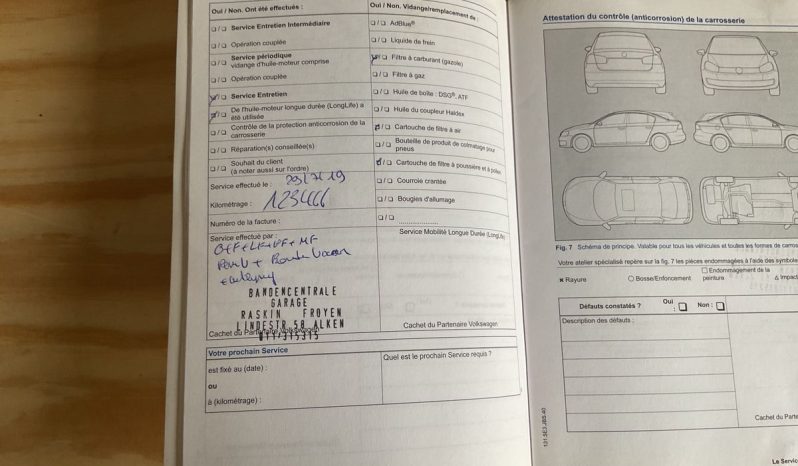 Oui / Non. Ont été effectués :
❏ / ❏ Service Entretien Intermédiaire
❏ / ❏ Opération couplée
❏ / ❏ Service périodique
vidange d'huile-moteur comprise
❏ / ❏ Opération couplée
❏ / ❏ Service Entretien
❏ / ❏ De l'huile-moteur longue durée (LongLife) a
été utilisée
❏ / ❏ Contrôle de la protection anticorrosion de la
carrosserie
❏ / ❏ Réparation(s) conseillée(s)
❏ / ❏ Souhait du client
(à noter aussi sur l'ordre)
Service effectué le : 29/7/19
Kilométrage : 123466
Numéro de la facture :
Service effectué par :
BANDENCENTRALE
GARAGE
RASKIN FROYEN
LINDESTR 58 ALKEN
011-315315
Cachet du Partenaire Volkswagen
Oui / Non. Vidange/remplacement de :
❏ / ❏ AdBlue®
❏ / ❏ Liquide de frein
❏ / ❏ Filtre à carburant (gazole)
❏ / ❏ Filtre à gaz
❏ / ❏ Huile de boîte : DSG®, ATF
❏ / ❏ Huile du coupleur Haldex
❏ / ❏ Cartouche de filtre à air
❏ / ❏ Bouteille de produit de colmatage pour
pneus
❏ / ❏ Cartouche de filtre à poussière et à pollen
❏ / ❏ Courroie crantée
❏ / ❏ Bougies d'allumage
❏ / ❏ ....................
Service Mobilité Longue Durée (LongLife)
Cachet du Partenaire Volkswagen
Votre prochain Service
est fixé au (date) :
ou
à (kilométrage) :
Quel est le prochain Service requis ?
Attestation du contrôle (anticorrosion) de la carrosserie
Fig. 7 Schéma de principe. Valable pour tous les véhicules et toutes les formes de carros
Votre atelier spécialisé repère sur la fig. 7 les pièces endommagées à l'aide des symbole
✖ Rayure
○ Bosse/Enfoncement
☐ Endommagement de la
peinture
△ Impact
Défauts constatés ? Oui : ❏ Non : ❏
Description des défauts :
Cachet du Parte
131.5E3.JBS.40
Le Servic